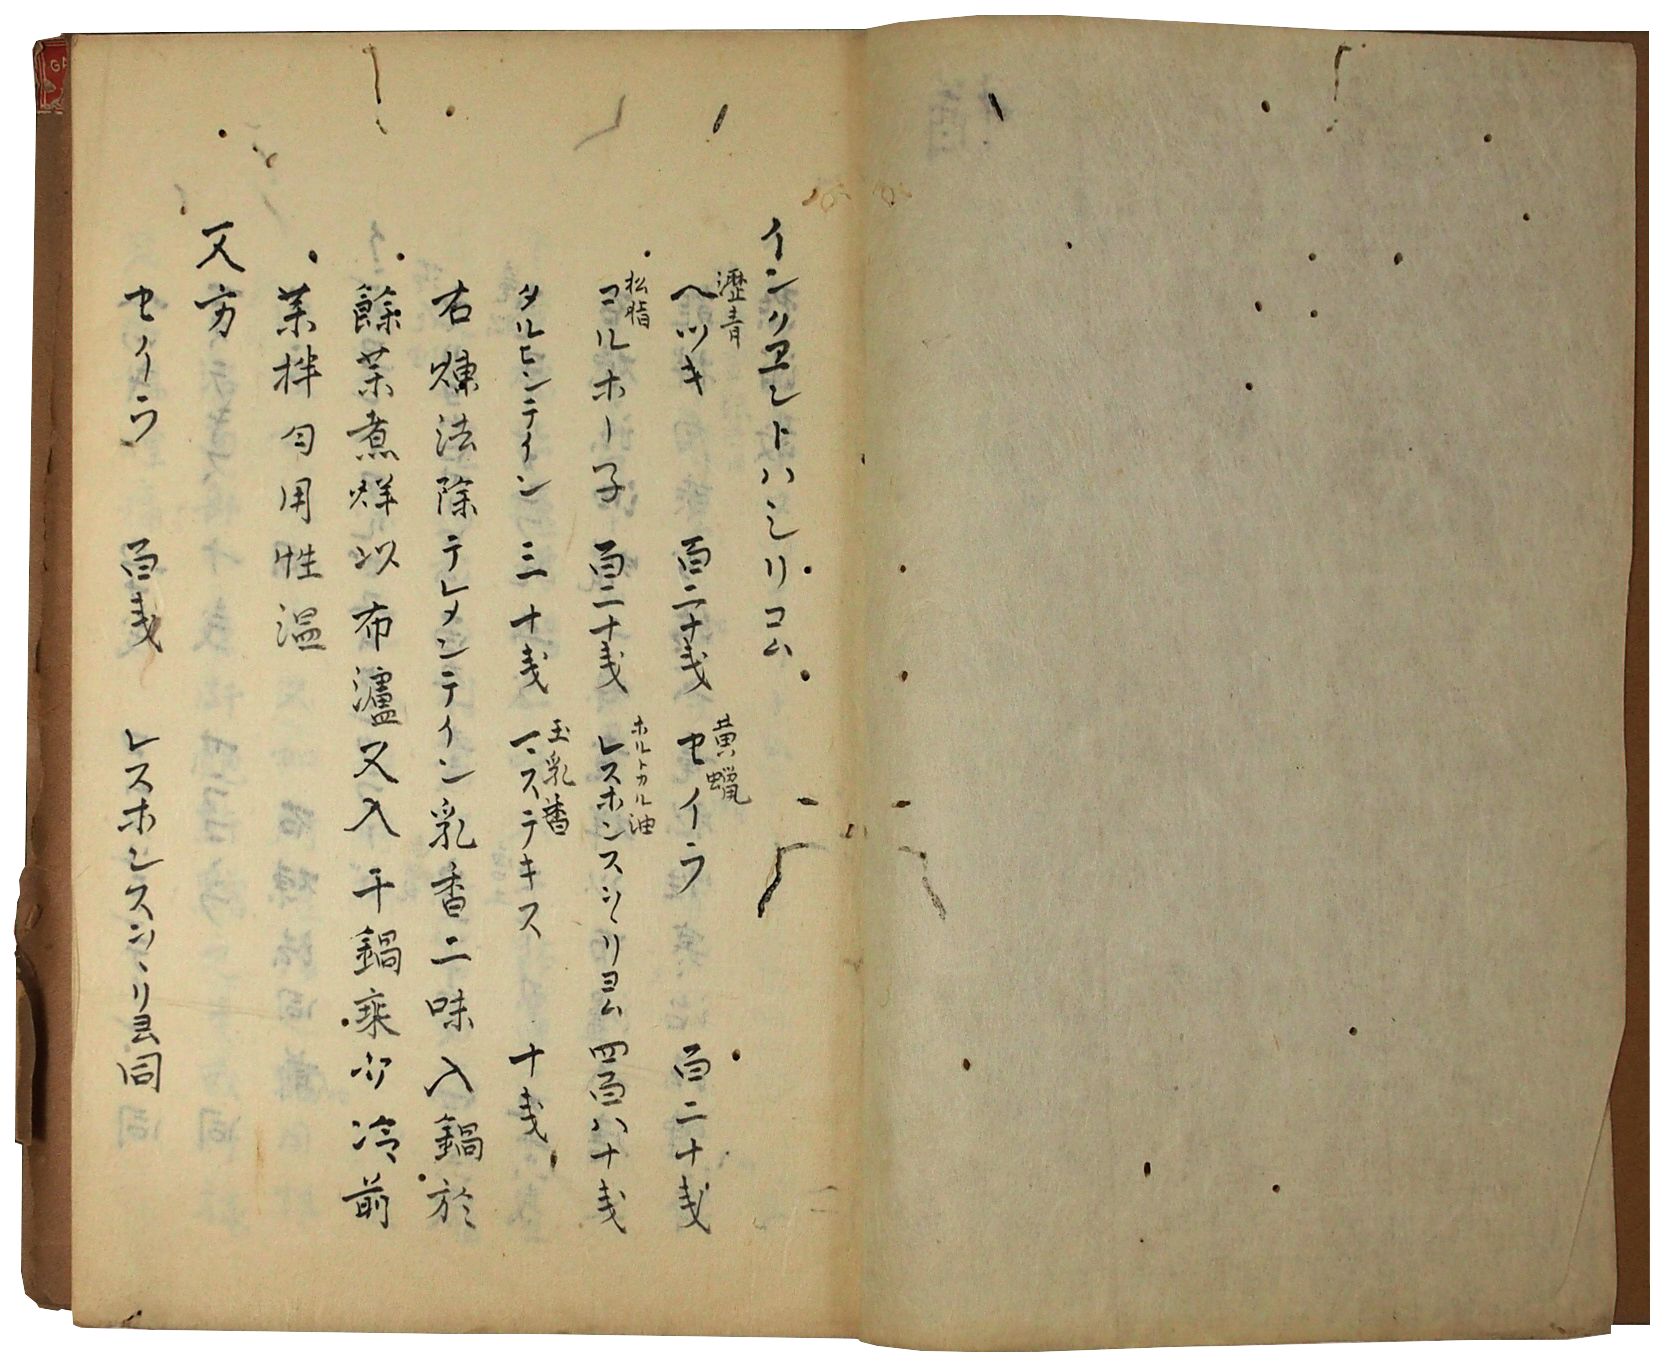 インクエントハシリコム
瀝青
ヘツキ 百二十戔
黄蠟
セイラ 百二十戔
松脂
コルホー子 百二十戔
ホルトカル油
レスホンスソヽリヨム 四百八十戔
タルヒンテイン 三十戔
玉乳香
マステキス 十戔
右煉法除テレメンテイン乳香二味入鍋於
餘薬煮烊以布濾又入干鍋乗少冷前
薬拌匀用性温
又方
セイラ 百戔 レスホンスソヽリヨ同